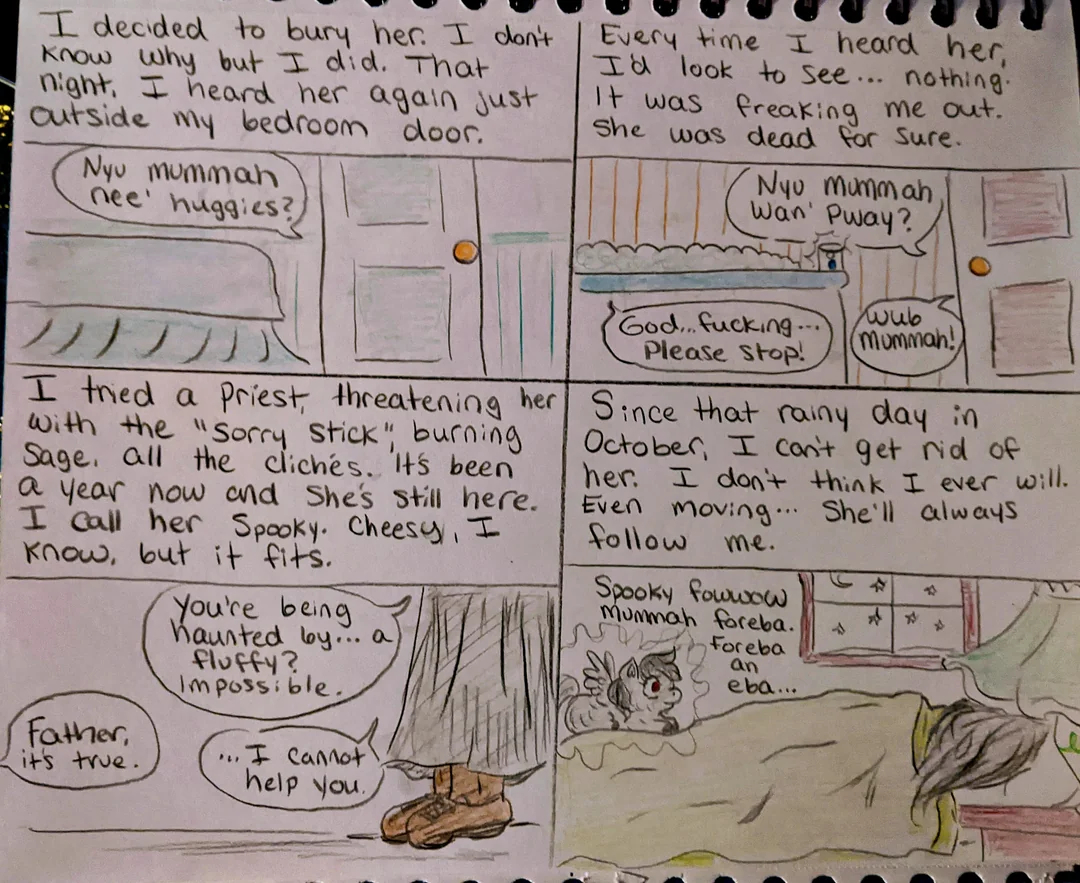 I decided to bury her. I don't
know why but I did. That
night, I heard her again just
outside my bedroom door.
Nyu mummah
nee' huggies?
Every time I heard her,
I'd look to see... nothing.
It was freaking me out.
She was dead for sure.
Nyu mummah
wan' pway?
God...fucking...
Please stop!
wub
mummah!
I tried a priest, threatening her
with the "sorry stick", burning
sage, all the clichés. It's been
a year now and she's still here.
I call her Spooky. Cheesy, I
know, but it fits.
You're being
haunted by... a
fluffy?
Impossible.
Father,
it's true.
...I cannot
help you.
Since that rainy day in
October, I can't get rid of
her. I don't think I ever will.
Even moving... She'll always
follow me.
Spooky fowwow
mummah foreba.
Foreba
an
eba...